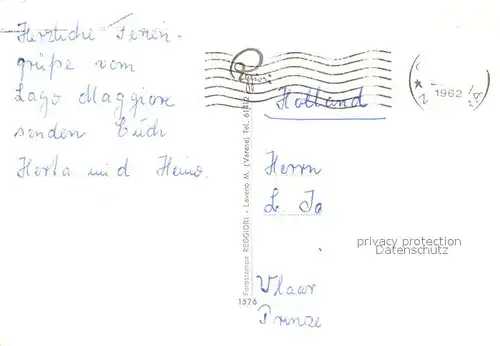 Herzliche Ferien-
grüße vom
Lago Maggiore
senden Euch
Herta und Heino.
Holland
Herrn
L. Ja
Vlaar
1962
Fotostampa REGGIORI - Laveno M. (Varese) Tel. 61412
1526
privacy protection
Datenschutz